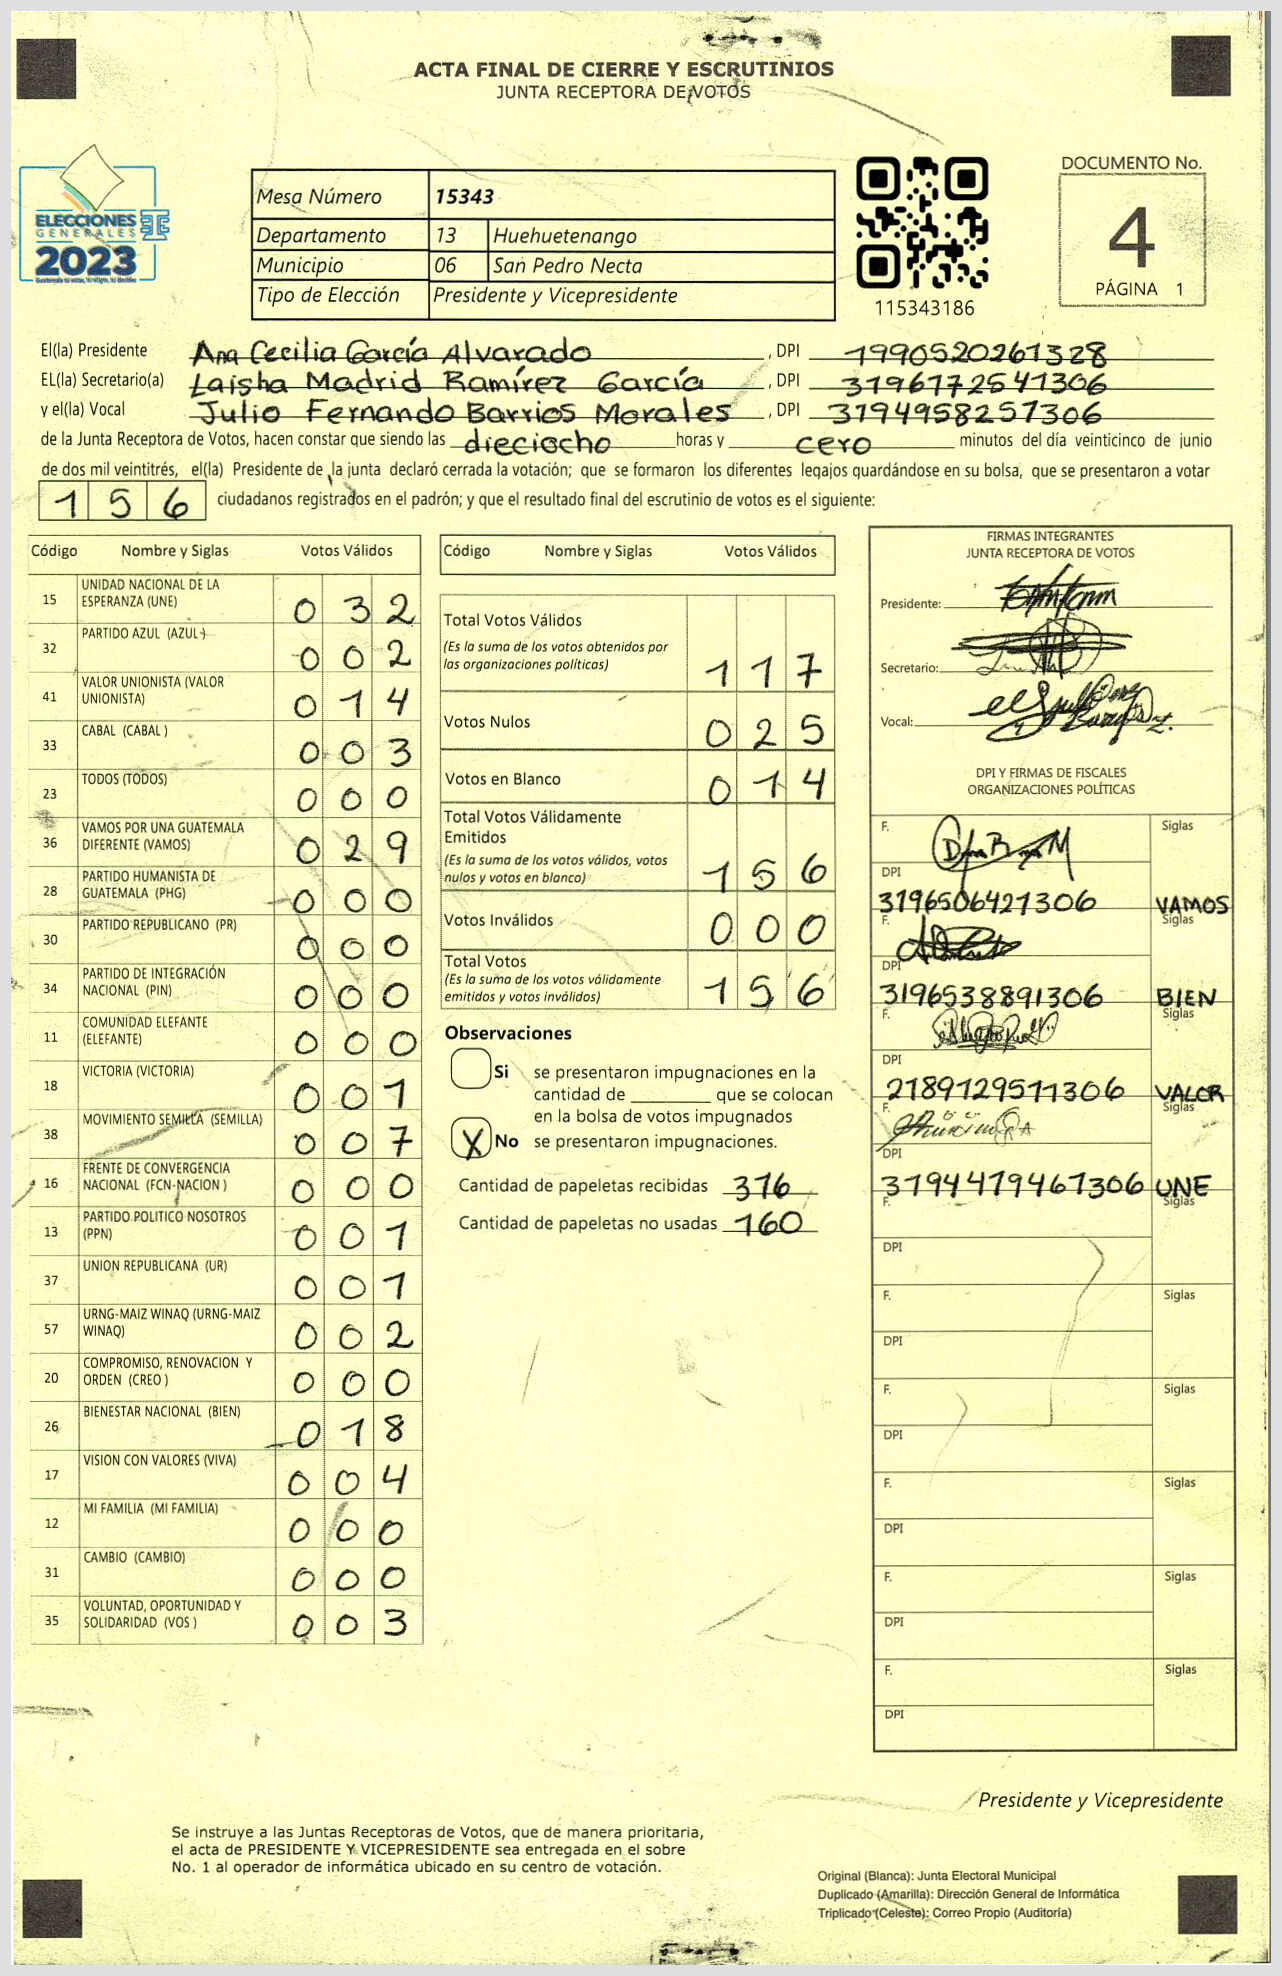 ACTA FINAL DE CIERRE Y ESCRUTINIOS
JUNTA RECEPTORA DE VOTOS
ELECCIONES
GENERALES
2023
Mesa Número 15343
Departamento 13 Huehuetenango
Municipio 06 San Pedro Necta
Tipo de Elección Presidente y Vicepresidente
115343186
DOCUMENTO No.
4
PÁGINA 1
El(la) Presidente Ana Cecilia García Alvarado, DPI 1990520261328
EL(la) Secretario(a) Laisha Madrid Ramírez García, DPI 3196172541306
y el(la) Vocal Julio Fernando Barrios Morales, DPI 3194958257306
de la Junta Receptora de Votos, hacen constar que siendo las dieciocho horas y cero minutos del día veinticinco de junio
de dos mil veintitrés, el(la) Presidente de la junta declaró cerrada la votación; que se formaron los diferentes legajos guardándose en su bolsa, que se presentaron a votar
156 ciudadanos registrados en el padrón; y que el resultado final del escrutinio de votos es el siguiente:
Código Nombre y Siglas Votos Válidos
15 UNIDAD NACIONAL DE LA ESPERANZA (UNE) 032
32 PARTIDO AZUL (AZUL) 002
41 VALOR UNIONISTA (VALOR UNIONISTA) 014
33 CABAL (CABAL ) 003
23 TODOS (TODOS) 000
36 VAMOS POR UNA GUATEMALA DIFERENTE (VAMOS) 029
28 PARTIDO HUMANISTA DE GUATEMALA (PHG) 000
30 PARTIDO REPUBLICANO (PR) 000
34 PARTIDO DE INTEGRACIÓN NACIONAL (PIN) 000
11 COMUNIDAD ELEFANTE (ELEFANTE) 000
18 VICTORIA (VICTORIA) 001
38 MOVIMIENTO SEMILLA (SEMILLA) 007
16 FRENTE DE CONVERGENCIA NACIONAL (FCN-NACION ) 000
13 PARTIDO POLITICO NOSOTROS (PPN) 001
37 UNION REPUBLICANA (UR) 001
57 URNG-MAIZ WINAQ (URNG-MAIZ WINAQ) 002
20 COMPROMISO, RENOVACION Y ORDEN (CREO ) 000
26 BIENESTAR NACIONAL (BIEN) 018
17 VISION CON VALORES (VIVA) 004
12 MI FAMILIA (MI FAMILIA) 000
31 CAMBIO (CAMBIO) 000
35 VOLUNTAD, OPORTUNIDAD Y SOLIDARIDAD (VOS ) 003
Código Nombre y Siglas Votos Válidos
Total Votos Válidos
(Es la suma de los votos obtenidos por
las organizaciones políticas) 117
Votos Nulos 025
Votos en Blanco 014
Total Votos Válidamente
Emitidos
(Es la suma de los votos válidos, votos
nulos y votos en blanco) 156
Votos Inválidos 000
Total Votos
(Es la suma de los votos válidamente
emitidos y votos inválidos) 156
Observaciones
Si se presentaron impugnaciones en la
cantidad de ________ que se colocan
en la bolsa de votos impugnados
X No se presentaron impugnaciones.
Cantidad de papeletas recibidas 316
Cantidad de papeletas no usadas 160
FIRMAS INTEGRANTES
JUNTA RECEPTORA DE VOTOS
Presidente:
Secretario:
Vocal:
DPI Y FIRMAS DE FISCALES
ORGANIZACIONES POLÍTICAS
F. Siglas
DPI
3196506421306 VAMOS
F. Siglas
DPI
3196538891306 BIEN
F. Siglas
DPI
2189129511306 VALOR
F. Siglas
DPI
3194479461306 UNE
F. Siglas
DPI
F. Siglas
DPI
F. Siglas
DPI
F. Siglas
DPI
F. Siglas
DPI
F. Siglas
DPI
Presidente y Vicepresidente
Se instruye a las Juntas Receptoras de Votos, que de manera prioritaria,
el acta de PRESIDENTE Y VICEPRESIDENTE sea entregada en el sobre
No. 1 al operador de informática ubicado en su centro de votación.
Original (Blanca): Junta Electoral Municipal
Duplicado (Amarilla): Dirección General de Informática
Triplicado (Celeste): Correo Propio (Auditoría)